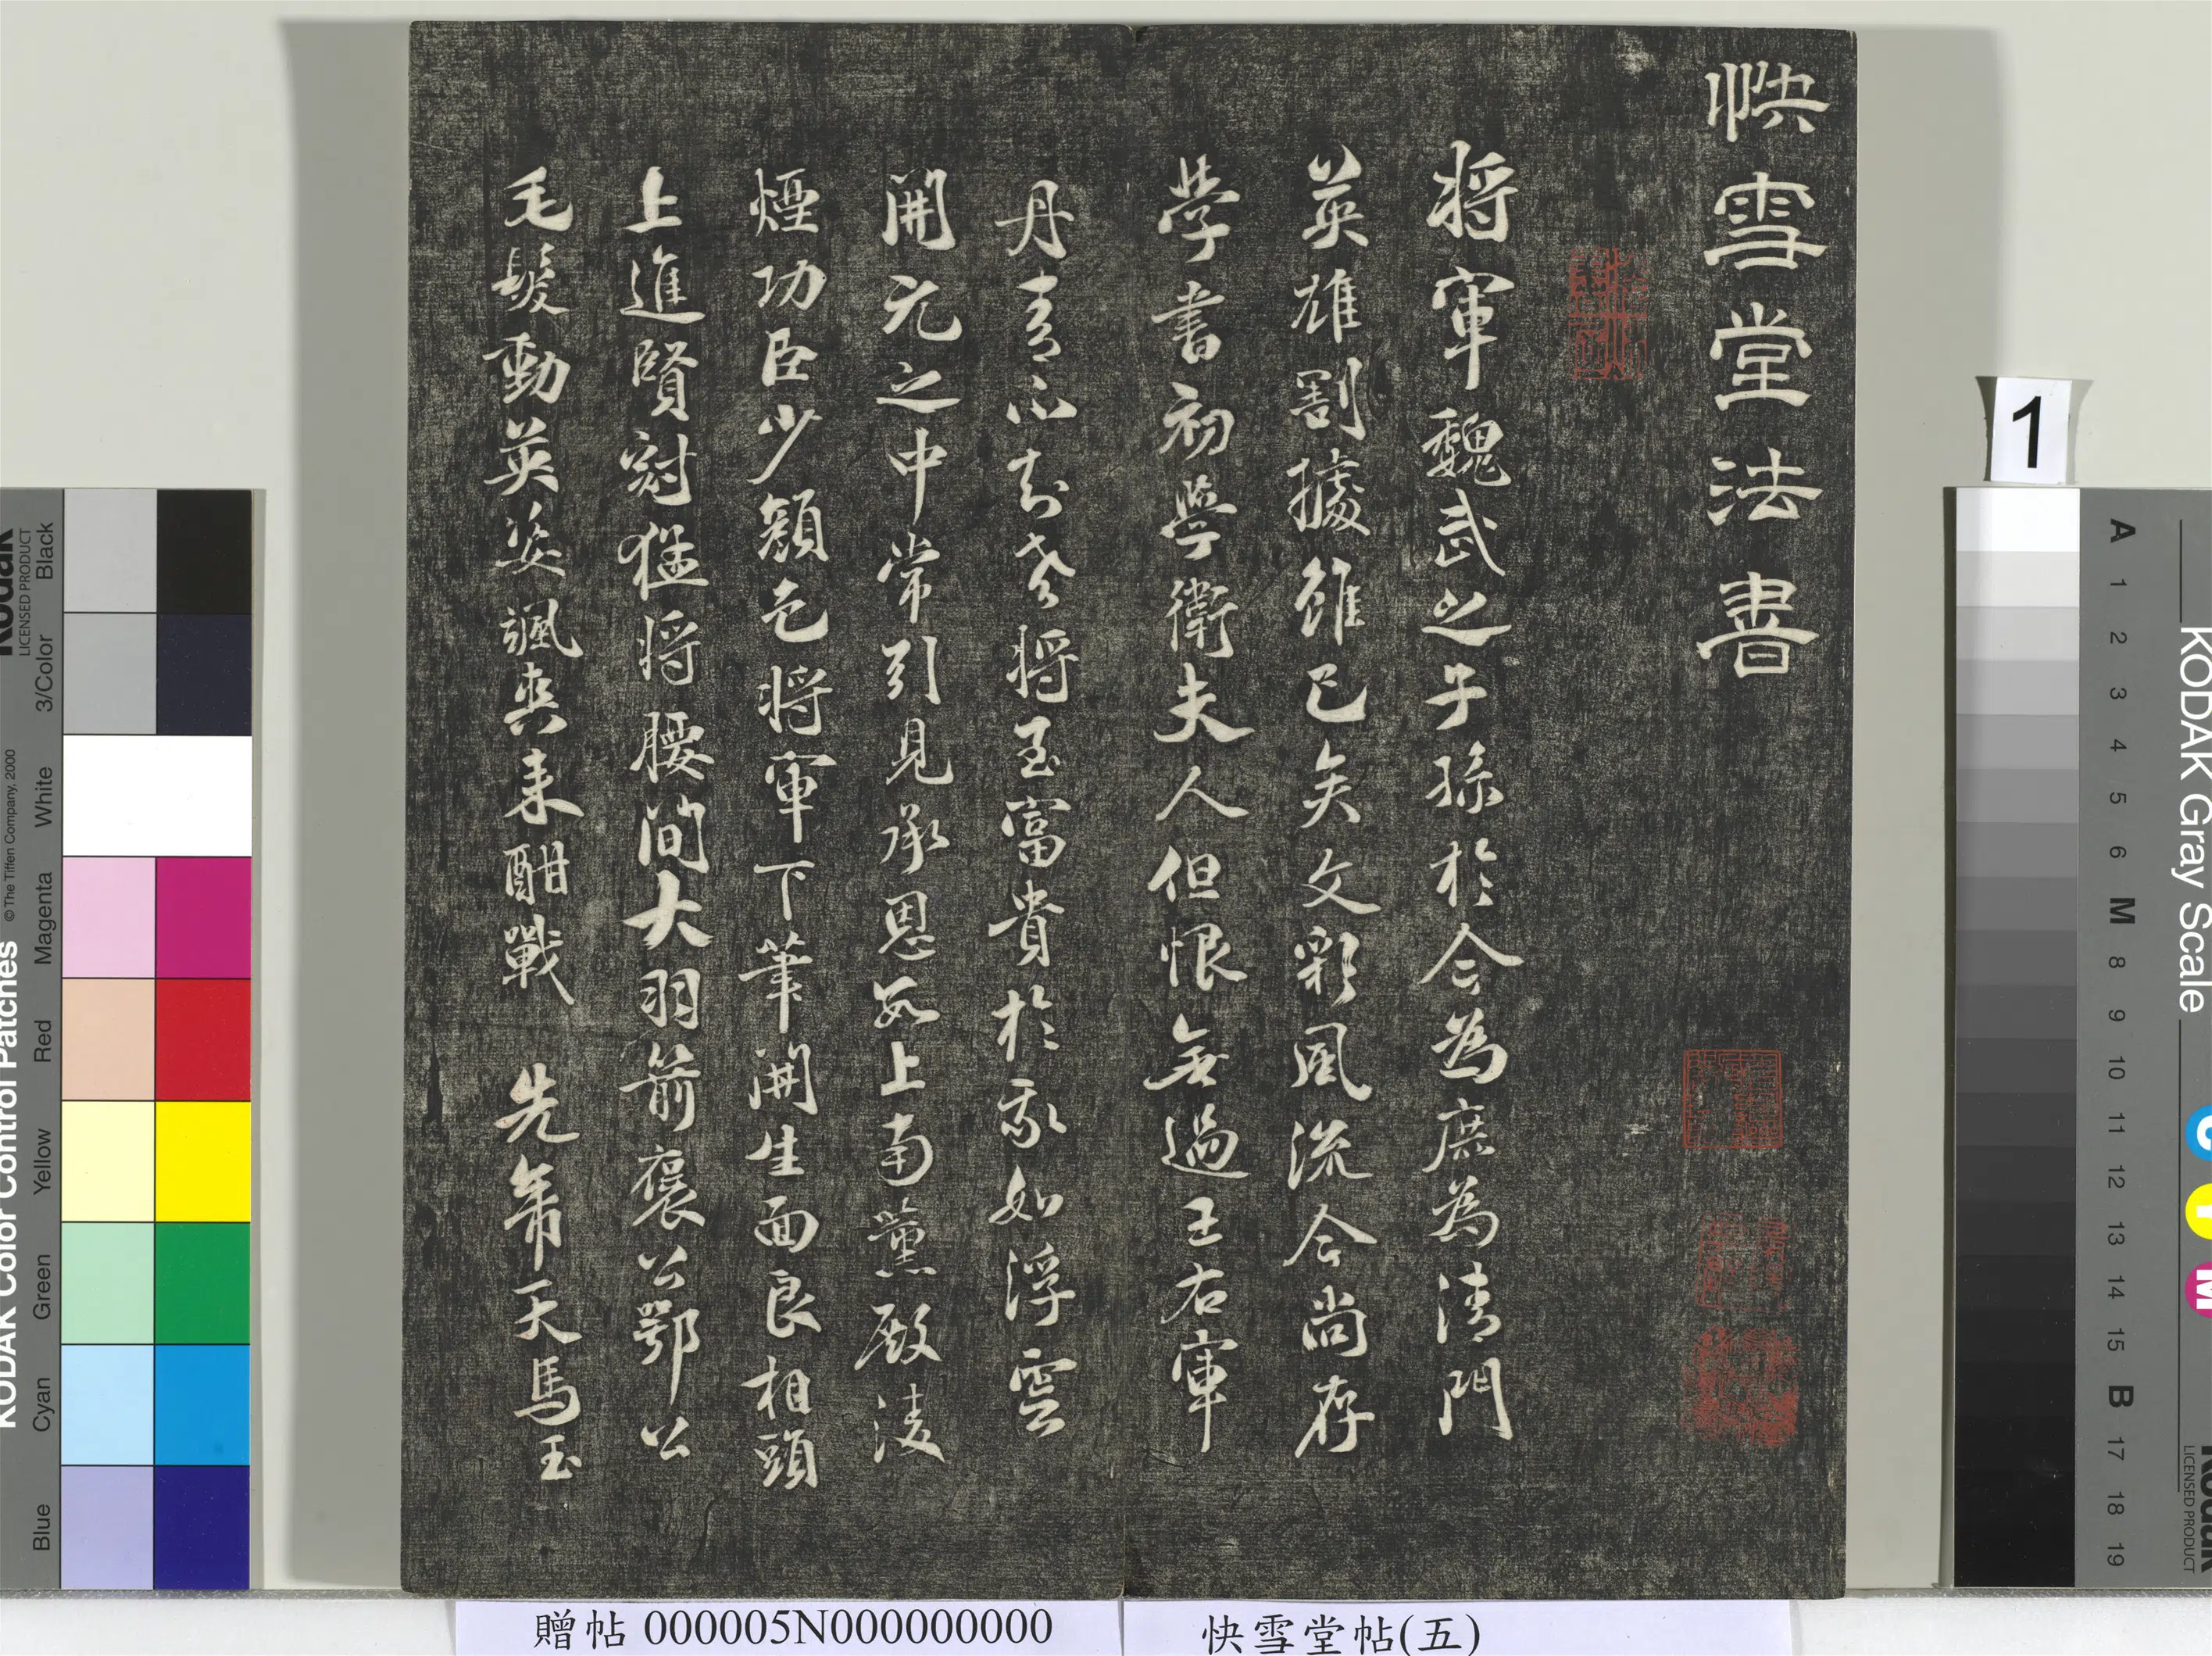 快雪堂法書
將軍魏武之子孫於今為庶為清門
英雄割據雖已矣文彩風流今尚存
學書初學衛夫人但恨無過王右軍
丹青不知老將至富貴於我如浮雲
開元之中常引見承恩數上南薰殿淩
煙功臣少顏色將軍下筆開生面良相頭
上進賢冠猛將腰間大羽箭褒公鄂公
毛髮動英姿颯爽來酣戰 先帝天馬玉
贈帖 000005N000000000
快雪堂帖(五)
1
KODAK Color Control Patches
© The Tiffen Company, 2000
Kodak
LICENSED PRODUCT
Blue Cyan Green Yellow Red Magenta White 3/Color Black
KODAK Gray Scale
C Y M
Kodak
LICENSED PRODUCT
A 1 2 3 4 5 6 M 8 9 10 11 12 13 14 15 B 17 18 19